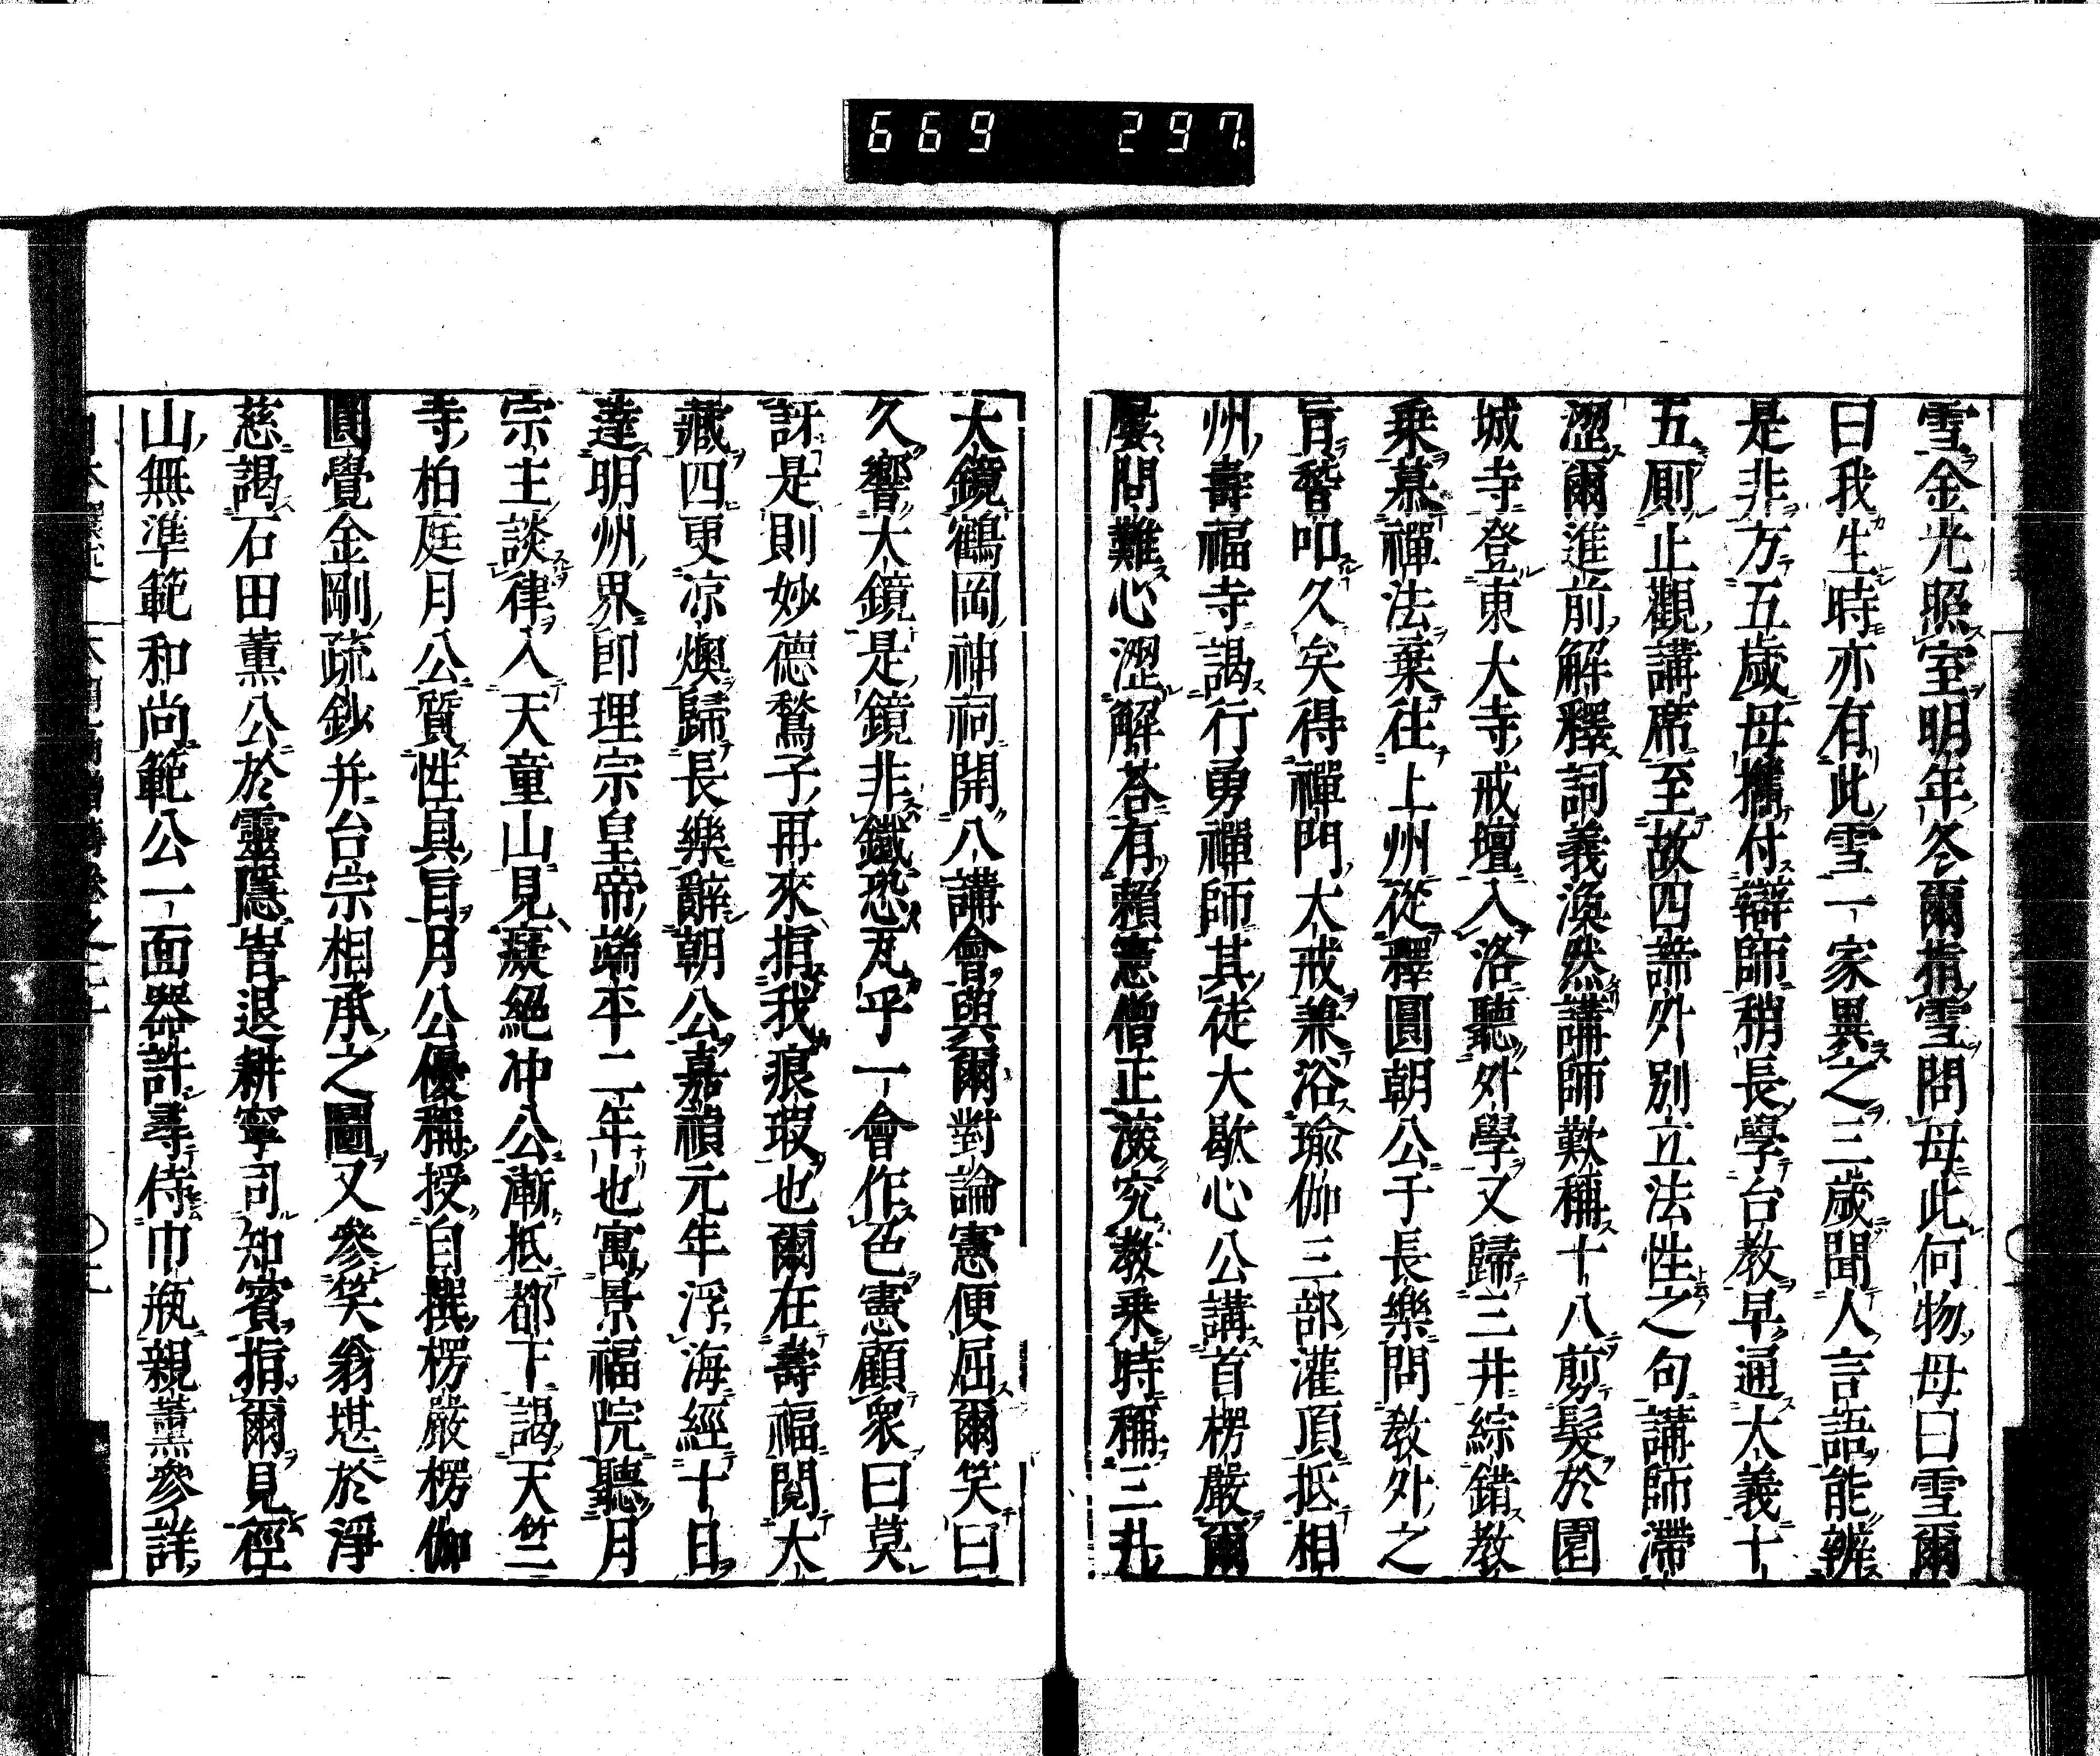 669 297
雪金光照室明年冬爾指雪問母此何物母曰雪爾
曰我生時亦有此雪一家異之三歲聞人言語能辨
是非方五歲母攜付辯師稍長學台教早通大義十
五廁止觀講席至故四諦外別立法性之句講師滯
澀爾進前解釋詞義渙然講師歎稱十八剪髮於園
城寺登東大寺戒壇入洛聽外學又歸三井綜錯教
乘慕禪法棄往上州從釋圓朝公于長樂問教外之
旨瞀叩久矣得禪門大戒兼浴瑜伽三部灌頂抵相
州壽福寺謁行勇禪師其徒大歇心公講首楞嚴爾
屢問難心澀解荅有賴憲僧正淡究教乘時稱三井
大鏡鶴岡神祠開八講會與爾對論憲便屈爾笑曰
久響大鏡是鏡非鐵恐瓦乎一會作色憲顧衆曰莫
訝是則妙德鶖子再來指我痕瑕也爾在壽福閱大
藏四更凉燠歸長樂辭朝公嘉禎元年浮海經十日
達明州界即理宗皇帝端平二年也寓景福院聽月
宗主談律入天童山見癡絕冲公漸抵都下謁天竺
寺柏庭月公質性具旨月公優稱授自撰楞嚴楞伽
圓覺金剛疏鈔并台宗相承之圖又參笑翁堪於淨
慈謁石田薰公於靈隱皆退耕寧司知賓指爾見徑
山無準範和尚範公一面器許尋侍巾瓶親薰參詳